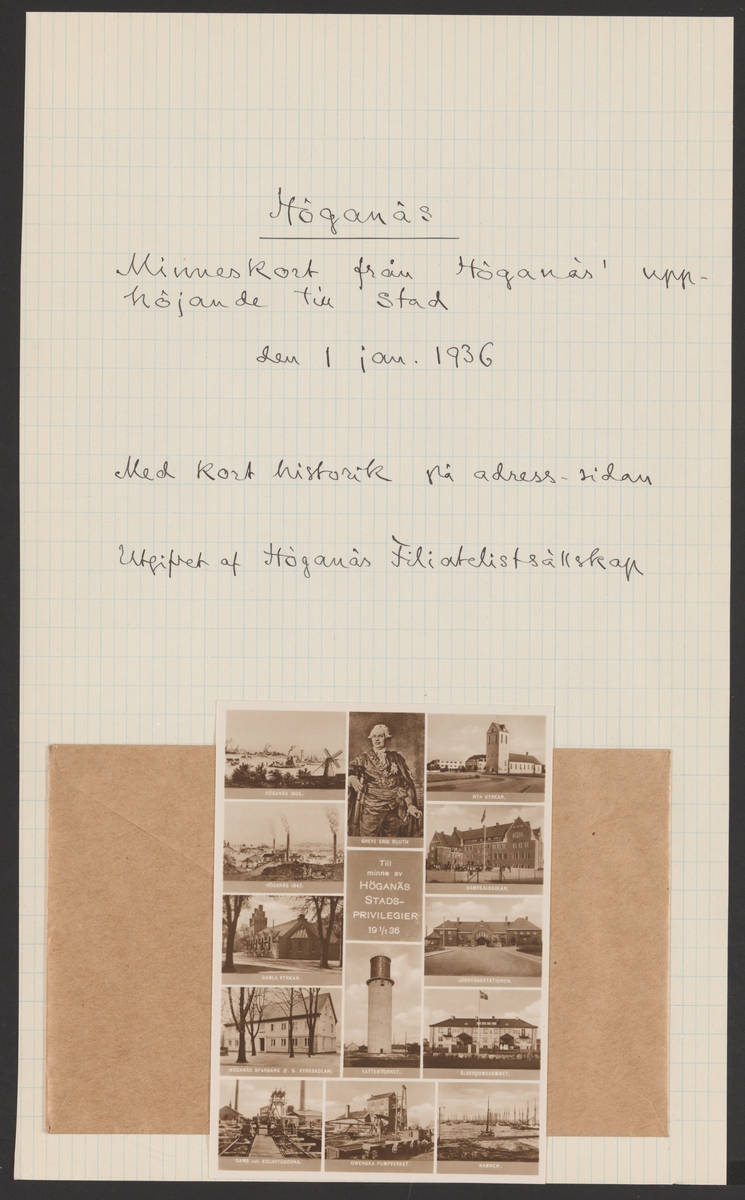 Höganäs
Minneskort från Höganäs' upp-
höjande till Stad
den 1 jan. 1936
Med kort historik på adress-sidan
Utgifvet af Höganäs Filiatelistsällskap
HÖGANÄS
GREVE ERIC RUUTH
NYA KYRKAN.
HÖGANÄS
Till
minne av
HÖGANÄS
STADS-
PRIVILEGIER
19 1/1 36
SAMREALSKOLAN.
GAMLA KYRKAN
JÄRNVÄGSSTATIONEN.
HÖGANÄS SPARBANK (F. D. YRKSSKOLAN)
VATTENTORNET.
ÅLDERDOMSHEMMET.
KOLBRYTNINGEN.
SWENSKA PUMPVERKET.
HAMNEN.